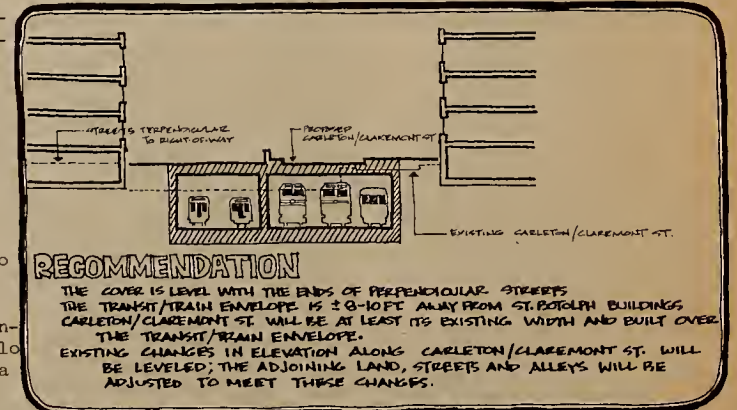 STREETS PERPENDICULAR
TO RIGHT-OF-WAY
PROPOSED
CARLETON/CLAREMONT ST
EXISTING CARLETON/CLAREMONT ST.
RECOMMENDATION
THE COVER IS LEVEL WITH THE ENDS OF PERPENDICULAR STREETS
THE TRANSIT/TRAIN ENVELOPE IS ±8-10 FT AWAY FROM ST. BOTOLPH BUILDINGS
CARLETON/CLAREMONT ST. WILL BE AT LEAST ITS EXISTING WIDTH AND BUILT OVER
THE TRANSIT/TRAIN ENVELOPE.
EXISTING CHANGES IN ELEVATION ALONG CARLETON/CLAREMONT ST. WILL
BE LEVELED; THE ADJOINING LAND, STREETS AND ALLEYS WILL BE
ADJUSTED TO MEET THESE CHANGES.